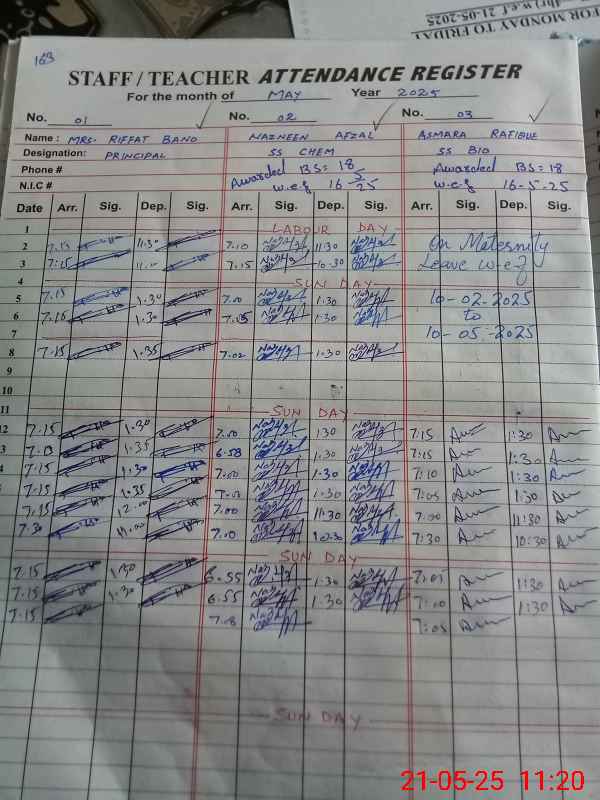 FOR MONDAY TO FRIDAY
w.e.f 21-05-2025
163
STAFF / TEACHER ATTENDANCE REGISTER
For the month of MAY Year 2025
No. 01 No. 02 No. 03
Name : MRS. RIFFAT BANO NAZNEEN AFZAL ASMARA RAFIQUE
Designation: PRINCIPAL SS CHEM SS BIO
Phone # Awarded BS=18 Awarded BS=18
N.I.C # w.e.f 16-5-25 w.e.f 16-5-25
Date Arr. Sig. Dep. Sig. Arr. Sig. Dep. Sig. Arr. Sig. Dep. Sig.
1 LABOUR DAY
2 7.15 11.30 7.10 11.30 On Maternity
3 7.15 7.15 10.30 Leave w.e.f
4 SUN DAY
5 7.15 1.30 7.00 1.30 10-02-2025
6 1.30 1.30 to
7 10-05-2025
8 7.15 1.35 7.02 1.30
9
10
11 SUN DAY
12 7.15 1.30 7.00 1.30 7:15 1:30
3 1.35 6.58 1.30 7:15 1:30
4 7.15 1.30 7.00 1.30 7:10 1:30
5 7.15 1.35 7.00 1.30 7:05 1:30
7.15 12.00 7.00 11.30 7:00 11:30
7.30 11.00 7.10 10.30 7:30 10:30
SUN DAY
7.15 1.30 6.55 1.30 7:05 1:30
7.15 1.30 6.55 1.30 7:00 1:30
7.15 7.08 7:05
SUN DAY
21-05-25 11:20